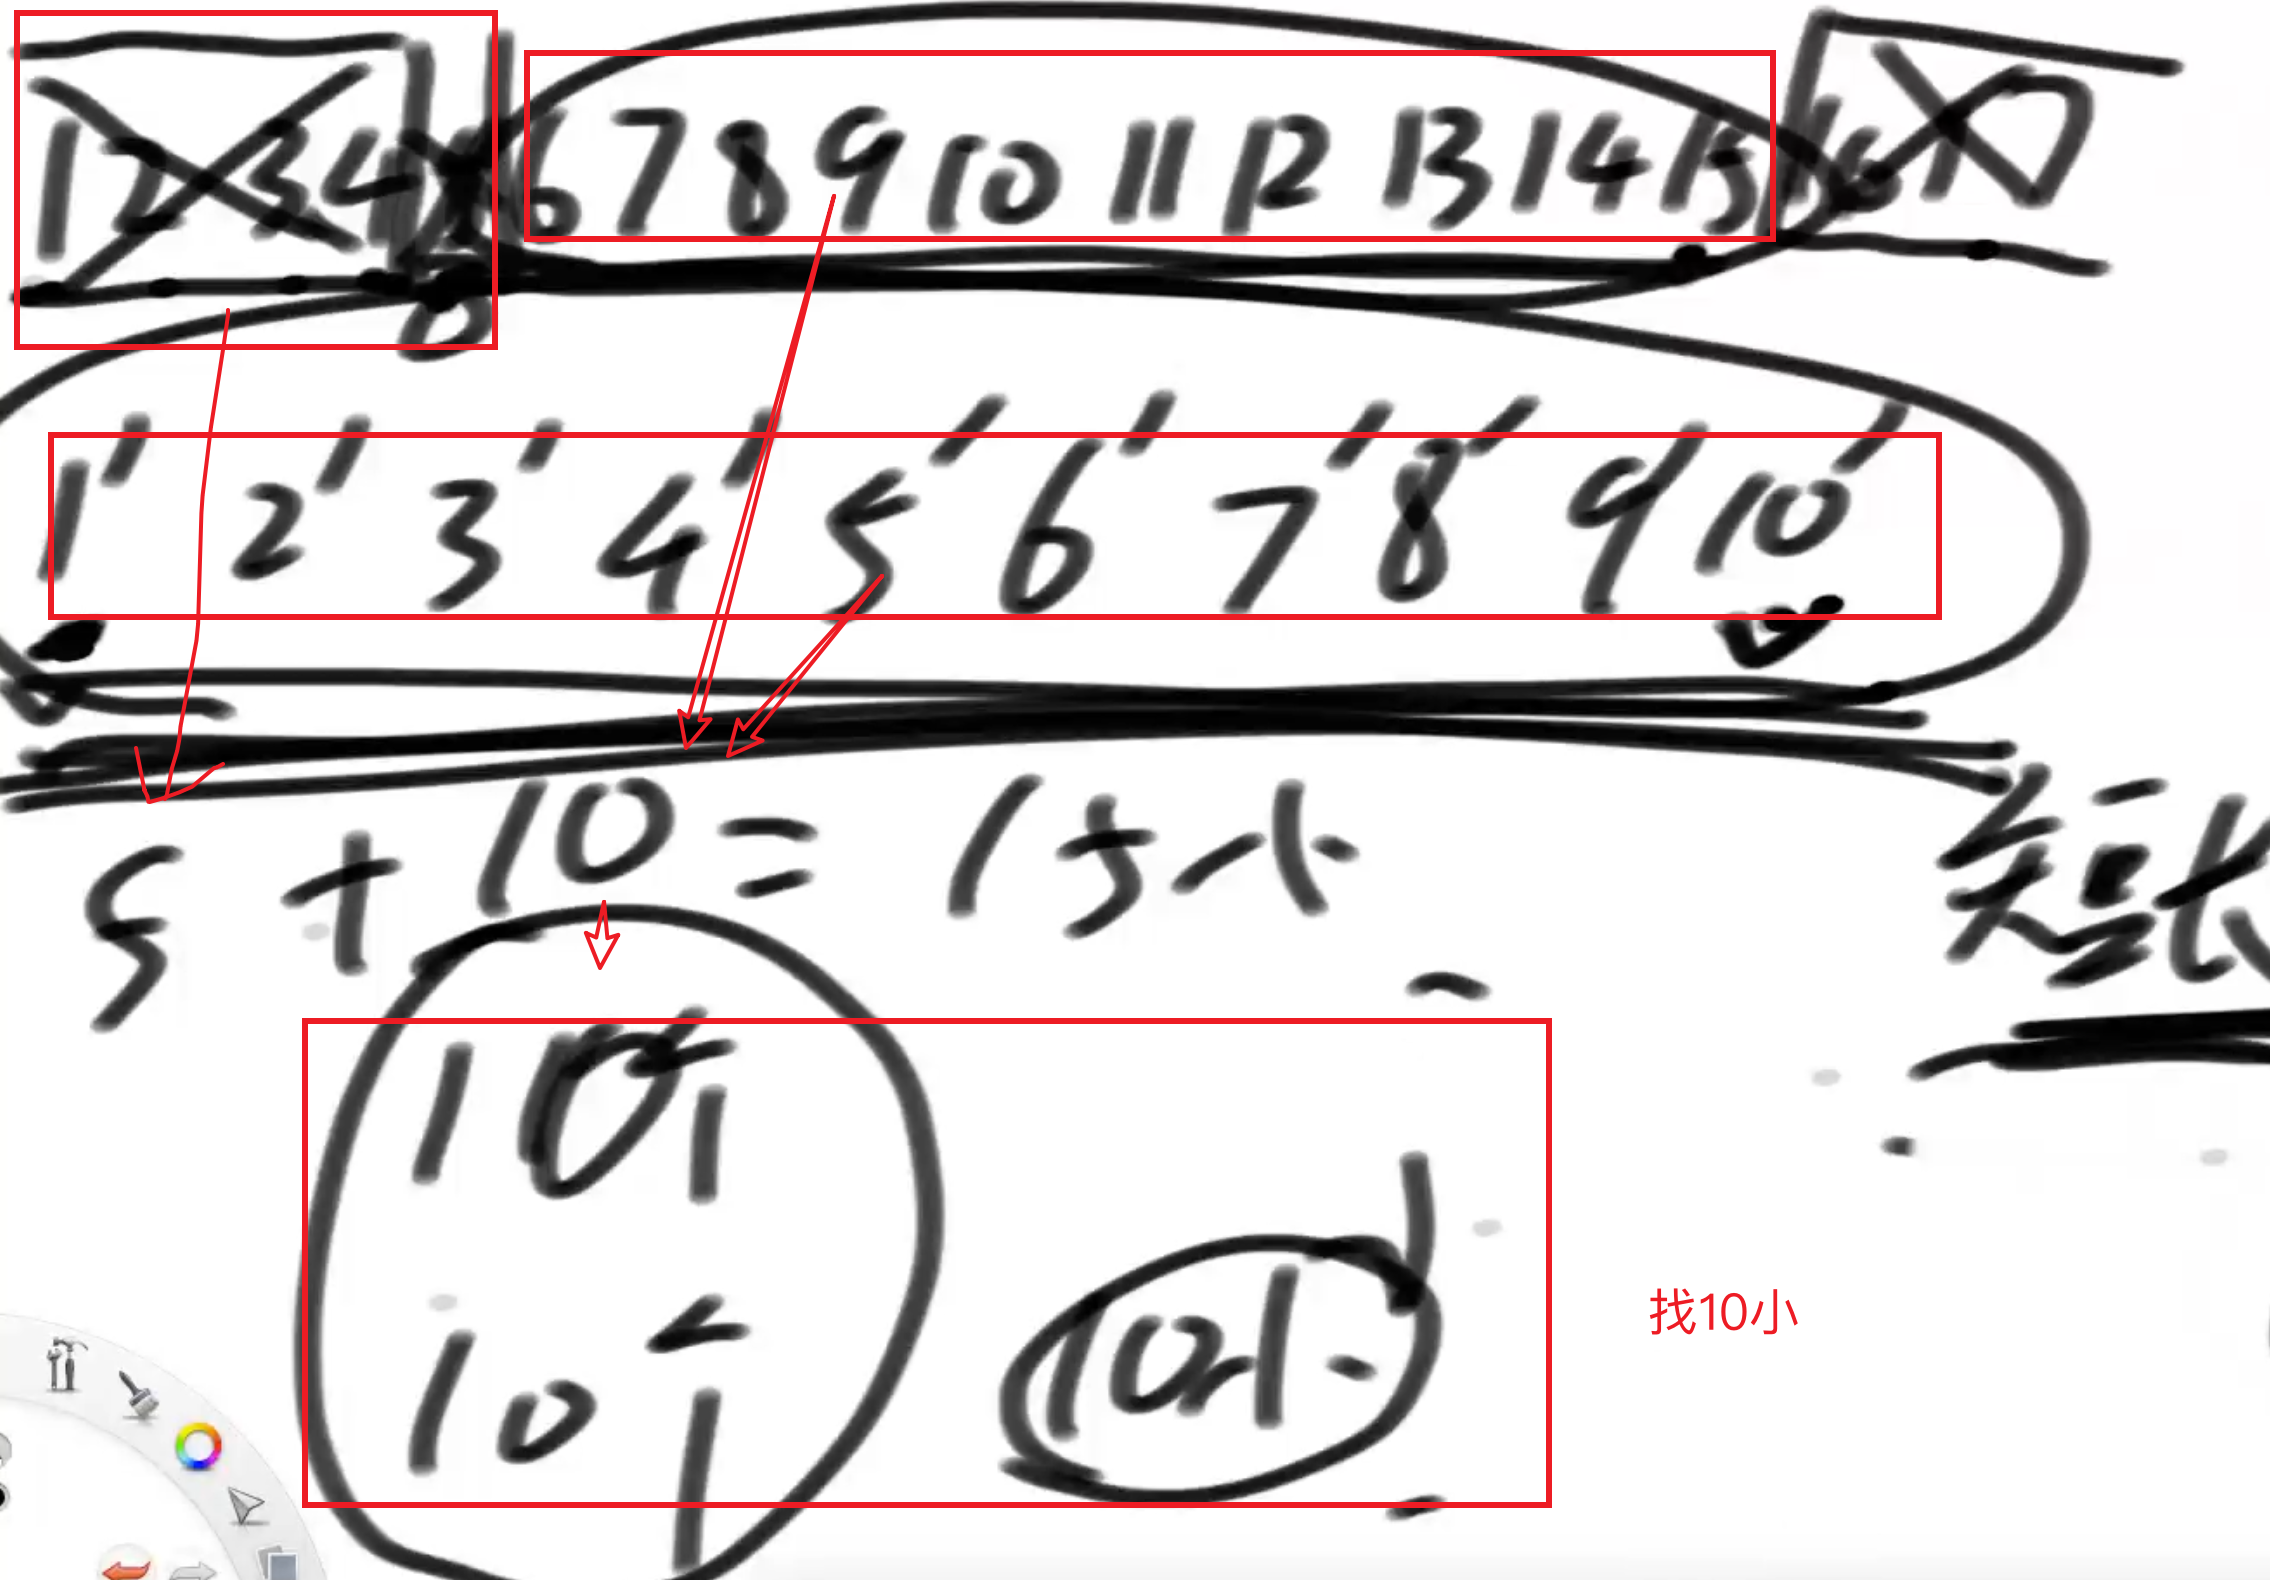 1 2 3 4 6 7 8 9 10 11 12 13 14 15 16 17
1' 2' 3' 4' 5' 6' 7' 8' 9' 10'
5 + 10 = 15小 短长
10
10小
10
找10小